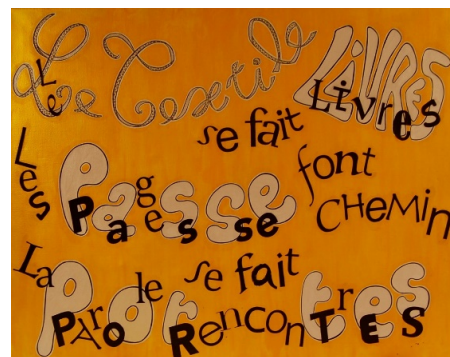 Le Textile
se fait Livres
Les Pages se font CHeMiN
La Parole se fait RenconTrES